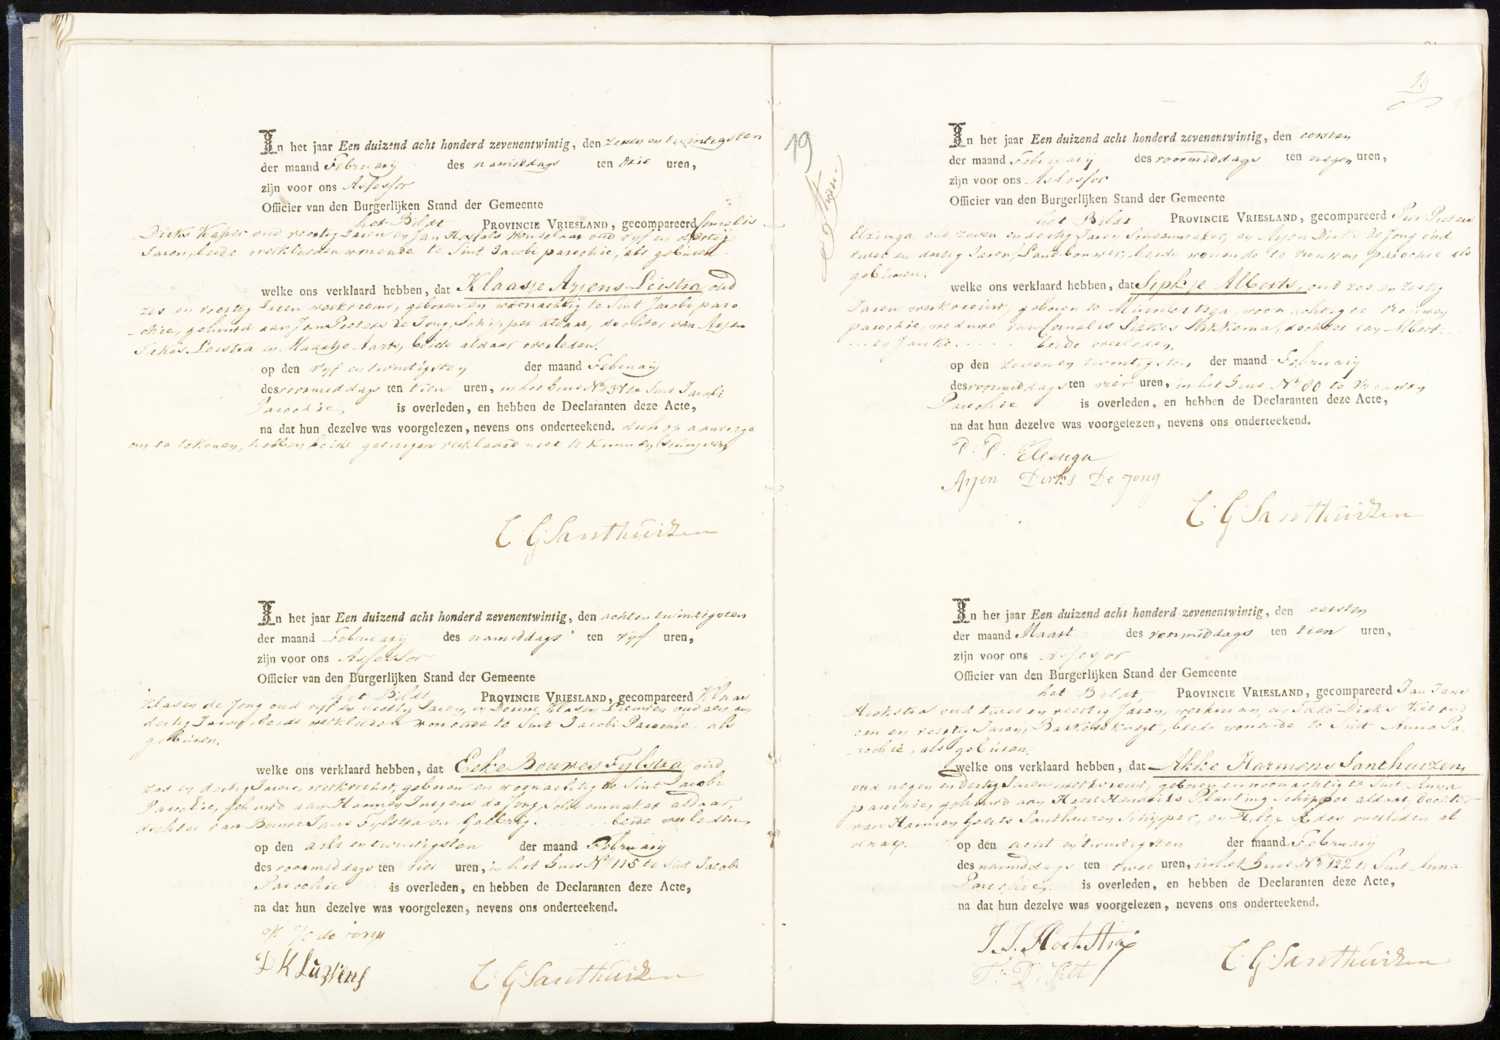 In het jaar Een duizend acht honderd zevenentwintig, den zeven en twintigsten
der maand February des namiddags ten drie uren,
zijn voor ons Assessor
Officier van den Burgerlijken Stand der Gemeente
het Bildt PROVINCIE VRIESLAND, gecompareerd Cornelis
Dirks Kuper oud veertig Jaren en Jan
Jaren, beide werklieden wonende te Sint Jacobi parochie, als geburen
welke ons verklaard hebben, dat Klaasje Arjens Leistra oud
zes en veertig Jaren werkvrouw, geboren en woonachtig te Sint Jacobi paro
chie, gehuwd aan Jan Pieters de Jong, Schipper aldaar, dochter van Arjen
Leistra en Maaitje Aarts, beide aldaar overleden.
op den vyf en twintigsten der maand February
des voormiddags ten tien uren, in het huis No 37 te Sint Jacobi
Parochie is overleden, en hebben de Declaranten deze Acte,
na dat hun dezelve was voorgelezen, nevens ons onderteekend. doch op aanvrage
om te tekenen, hebben beide getuigen verklaard niet te kunnen schryven
C G Santhuizen
In het jaar Een duizend acht honderd zevenentwintig, den achten twintigsten
der maand February des namiddags ten vyf uren,
zijn voor ons Assessor
Officier van den Burgerlijken Stand der Gemeente
het Bildt PROVINCIE VRIESLAND, gecompareerd Klaas
Klasen de Jong oud vyf en veertig Jaren, en Douwe Klasen
dertig Jaren, beide werklieden wonende te Sint Jacobi Parochie als
geburen.
welke ons verklaard hebben, dat Eeke Bouwes Fylstra oud
zes en dertig Jaren, werkvrouw, geboren en woonachtig te Sint Jacobi
Parochie, gehuwd aan Hannes Jurjens de Jong, aldaar,
dochter van Bouwe Jans Fylstra en beide overleden
op den acht en twintigsten der maand February
des voormiddags ten uren, in het huis No 115 te Sint Jacobi
Parochie is overleden, en hebben de Declaranten deze Acte,
na dat hun dezelve was voorgelezen, nevens ons onderteekend.
K K de iong
D K
C G Santhuizen
19
19
In het jaar Een duizend acht honderd zevenentwintig, den eersten
der maand February des voormiddags ten negen uren,
zijn voor ons Assessor
Officier van den Burgerlijken Stand der Gemeente
het Bildt PROVINCIE VRIESLAND, gecompareerd Pieters
Elzinga oud zeven en dertig Jaren en Arjen Dirks de Jong oud
twee en dertig Jaren, Landbouwer, beide wonende te vrouwen parochie als
geburen.
welke ons verklaard hebben, dat Sepkje Alberts, oud zes en zestig
Jaren werkvrouw, geboren te Munnekezyl, woonachtig te Vrouwen
parochie, weduwe van Cornelis dochter van Albert
en Jantie beide overleden,
op den zeven en twintigsten der maand February
des voormiddags ten vier uren, in het huis No 80 te Vrouwen
Parochie is overleden, en hebben de Declaranten deze Acte,
na dat hun dezelve was voorgelezen, nevens ons onderteekend.
P. P. Elzinga
Arjen Dirks De jong
C G Santhuizen
In het jaar Een duizend acht honderd zevenentwintig, den eersten
der maand Maart des voormiddags ten tien uren,
zijn voor ons Assessor
Officier van den Burgerlijken Stand der Gemeente
het Bildt PROVINCIE VRIESLAND, gecompareerd Jan Jans
Hoekstra oud twee en veertig Jaren, werkman, en Dirks oud
een en veertig Jaren, beide wonende te Sint Anna Pa
rochie, als geburen.
welke ons verklaard hebben, dat Akke Harmens Santhuizen,
oud negen en dertig Jaren werkvrouw, geboren en woonachtig te Sint Anna
parochie, gehuwd aan Planting schipper aldaar, dochter
van Harmen Goits Santhuizen Schipper, en Hiltje overleden al
daar.
op den acht en twintigsten der maand February
des namiddags ten twee uren, in het huis No 122 te Sint Anna
Parochie, is overleden, en hebben de Declaranten deze Acte,
na dat hun dezelve was voorgelezen, nevens ons onderteekend.
J. J. Hoekstra
C G Santhuizen